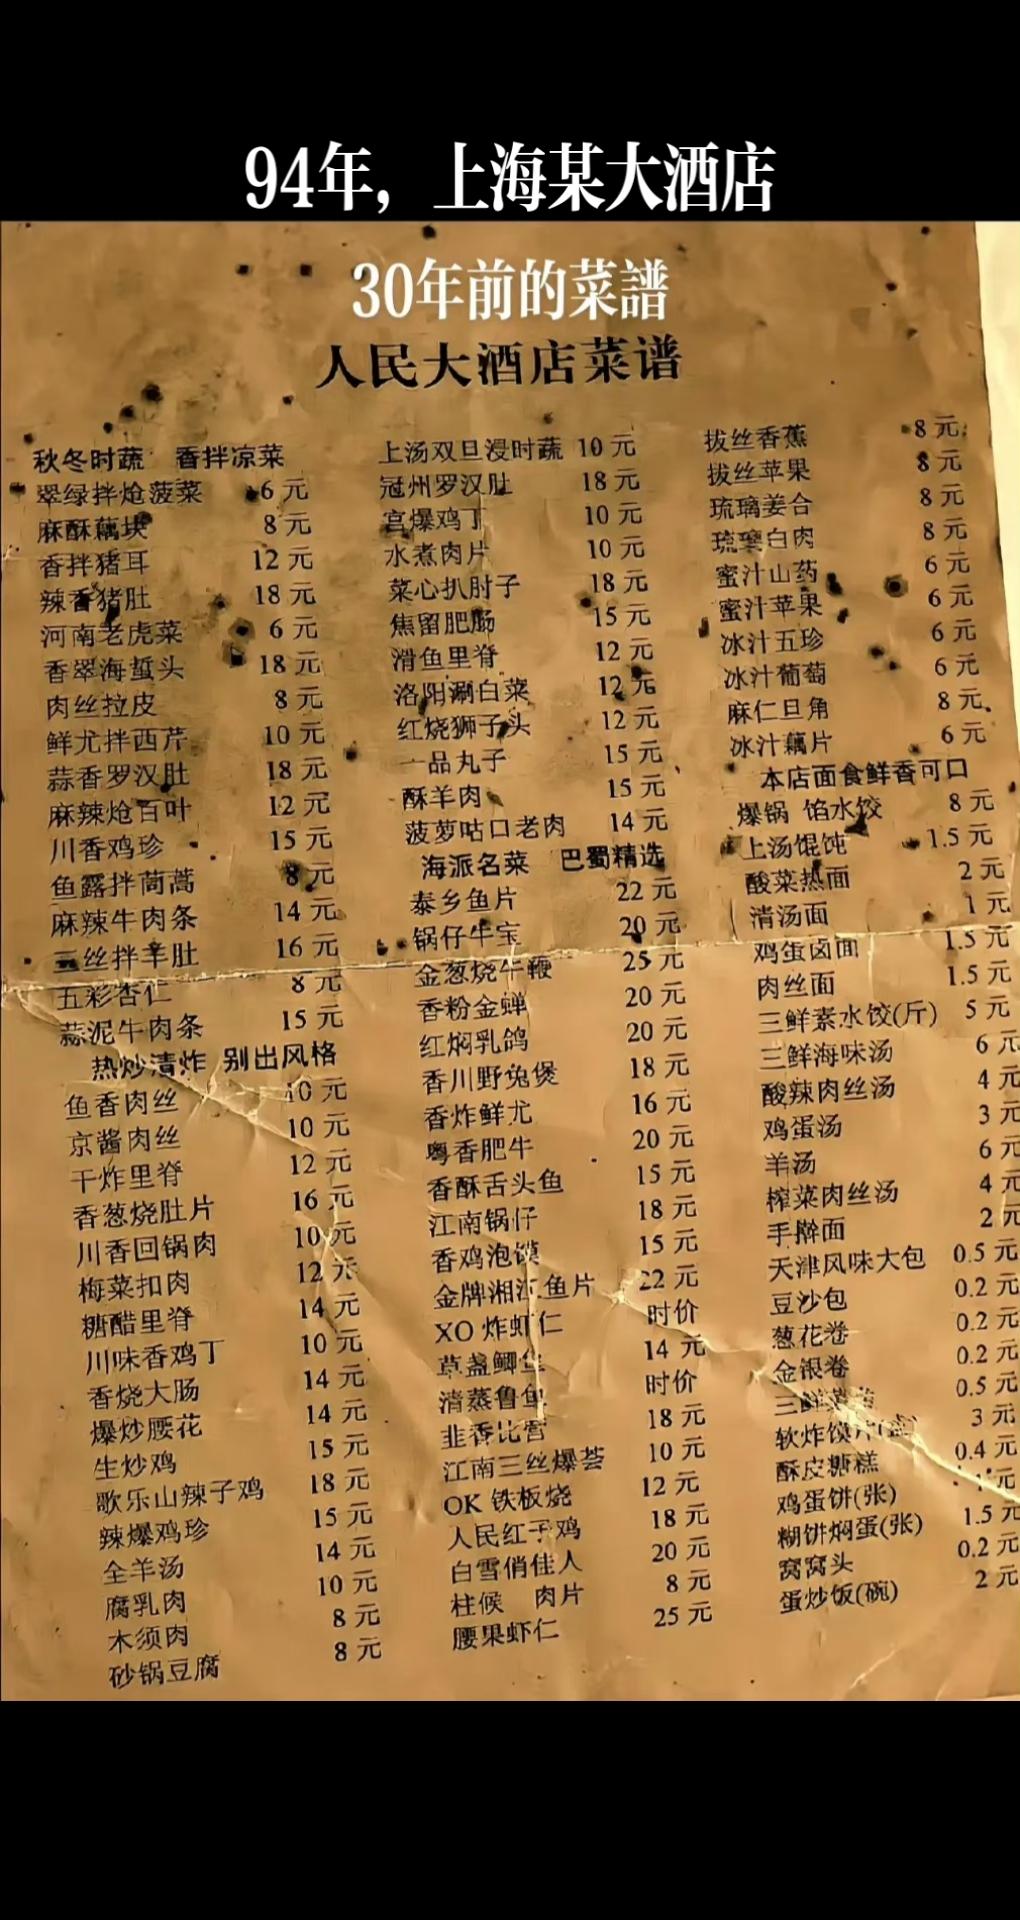 94年，上海某大酒店
30年前的菜譜
人民大酒店菜谱
秋冬时蔬 香拌凉菜
翠绿拌炝菠菜 6元
麻酥藕块 8元
香拌猪耳 12元
辣香猪肚 18元
河南老虎菜 6元
香翠海蜇头 18元
肉丝拉皮 8元
鲜尤拌西芹 10元
蒜香罗汉肚 18元
麻辣炝百叶 12元
川香鸡珍 15元
鱼露拌茼蒿 8元
麻辣牛肉条 14元
三丝拌羊肚 16元
五彩杏仁 8元
蒜泥牛肉条 15元
热炒清炸 别出风格
鱼香肉丝 10元
京酱肉丝 10元
干炸里脊 12元
香葱烧肚片 16元
川香回锅肉 10元
梅菜扣肉 12元
糖醋里脊 14元
川味香鸡丁 10元
香烧大肠 14元
爆炒腰花 14元
生炒鸡 15元
歌乐山辣子鸡 18元
辣爆鸡珍 15元
全羊汤 14元
腐乳肉 10元
木须肉 8元
砂锅豆腐 8元
上汤双旦浸时蔬 10元
冠州罗汉肚 18元
宫爆鸡丁 10元
水煮肉片 10元
菜心扒肘子 18元
焦留肥肠 15元
滑鱼里脊 12元
洛阳涮白菜 12元
红烧狮子头 12元
一品丸子 15元
酥羊肉 15元
菠萝咕口老肉 14元
海派名菜 巴蜀精选
泰乡鱼片 22元
锅仔牛宝 20元
金葱烧牛鞭 25元
香粉金蝉 20元
红焖乳鸽 20元
香川野兔煲 18元
香炸鲜尤 16元
粤香肥牛 20元
香酥舌头鱼 15元
江南锅仔 18元
香鸡泡馍 15元
金牌湘江鱼片 22元
XO炸虾仁 时价
草盏鲫鱼 14元
清蒸鲁鱼 时价
韭香比管 18元
江南三丝爆荟 10元
OK铁板烧 12元
人民红子鸡 18元
白雪俏佳人 20元
柱候 肉片 8元
腰果虾仁 25元
拔丝香蕉 8元
拔丝苹果 8元
琉璃姜合 8元
琉璃白肉 8元
蜜汁山药 6元
蜜汁苹果 6元
冰汁五珍 6元
冰汁葡萄 6元
麻仁旦角 8元
冰汁藕片 6元
本店面食鲜香可口
爆锅 馅水饺 8元
上汤馄饨 1.5元
酸菜热面 2元
清汤面 1元
鸡蛋卤面 1.5元
肉丝面 1.5元
三鲜素水饺(斤) 5元
三鲜海味汤 6元
酸辣肉丝汤 4元
鸡蛋汤 3元
羊汤 6元
榨菜肉丝汤 4元
手擀面 2元
天津风味大包 0.5元
豆沙包 0.2元
葱花卷 0.2元
金银卷 0.2元
三鲜 0.5元
软炸馍片 3元
酥皮糖糕 0.4元
鸡蛋饼(张) 1元
糊饼焖蛋(张) 1.5元
窝窝头 0.2元
蛋炒饭(碗) 2元